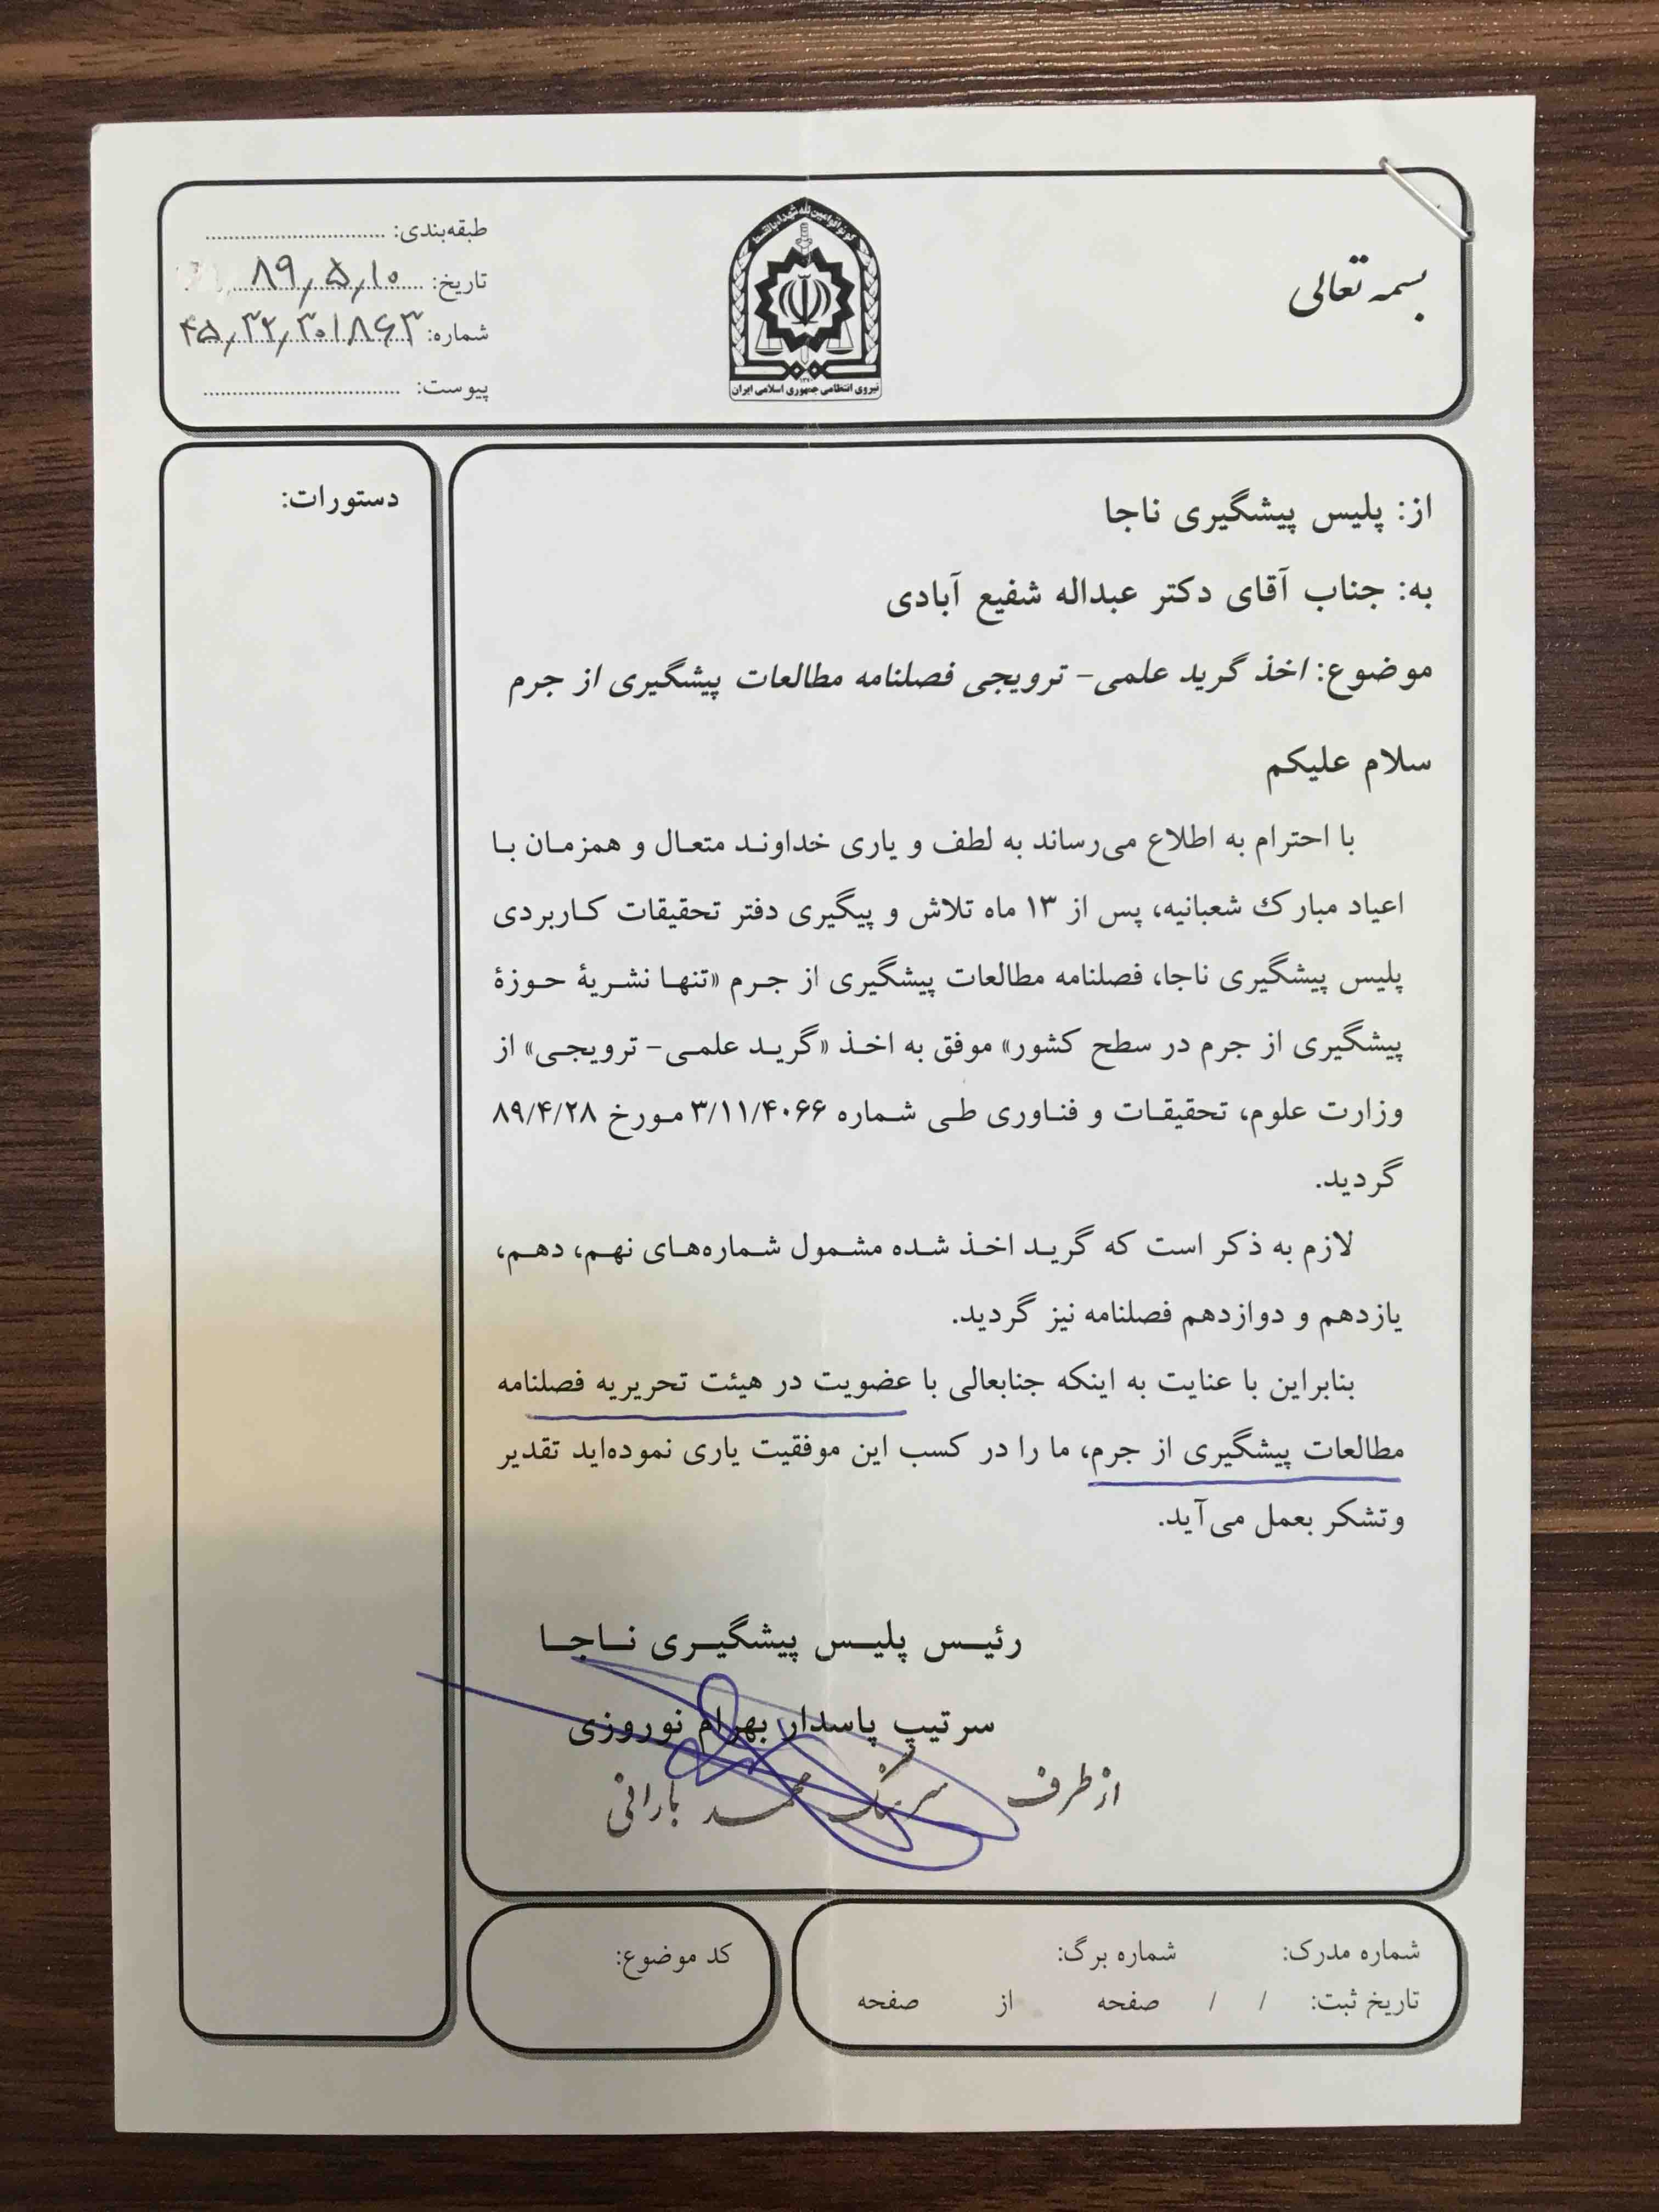 بسمه تعالی
کونوا قوامین لله شهداء بالقسط
۱۳۷۰
نیروی انتظامی جمهوری اسلامی ایران
طبقه‌بندی: ................................
تاریخ: ۸۹٫۵٫۱۰
شماره: ۴۵٫۳۲٫۳۰۱۸۶۳
پیوست: ................................
از: پلیس پیشگیری ناجا
به: جناب آقای دکتر عبداله شفیع آبادی
موضوع: اخذ گرید علمی- ترویجی فصلنامه مطالعات پیشگیری از جرم
سلام علیکم
با احترام به اطلاع می‌رساند به لطف و یاری خداوند متعال و همزمان با
اعیاد مبارک شعبانیه، پس از ۱۳ ماه تلاش و پیگیری دفتر تحقیقات کاربردی
پلیس پیشگیری ناجا، فصلنامه مطالعات پیشگیری از جرم «تنها نشریهٔ حوزهٔ
پیشگیری از جرم در سطح کشور» موفق به اخذ «گرید علمی- ترویجی» از
وزارت علوم، تحقیقات و فناوری طی شماره ۳/۱۱/۴۰۶۶ مورخ ۸۹/۴/۲۸
گردید.
لازم به ذکر است که گرید اخذ شده مشمول شماره‌های نهم، دهم،
یازدهم و دوازدهم فصلنامه نیز گردید.
بنابراین با عنایت به اینکه جنابعالی با عضویت در هیئت تحریریه فصلنامه
مطالعات پیشگیری از جرم، ما را در کسب این موفقیت یاری نموده‌اید تقدیر
وتشکر بعمل می‌آید.
رئیس پلیس پیشگیری ناجا
سرتیپ پاسدار بهرام نوروزی
از طرف سرهنگ محمد بارانی
دستورات:
شماره مدرک: شماره برگ:
تاریخ ثبت: / / صفحه از صفحه
کد موضوع: